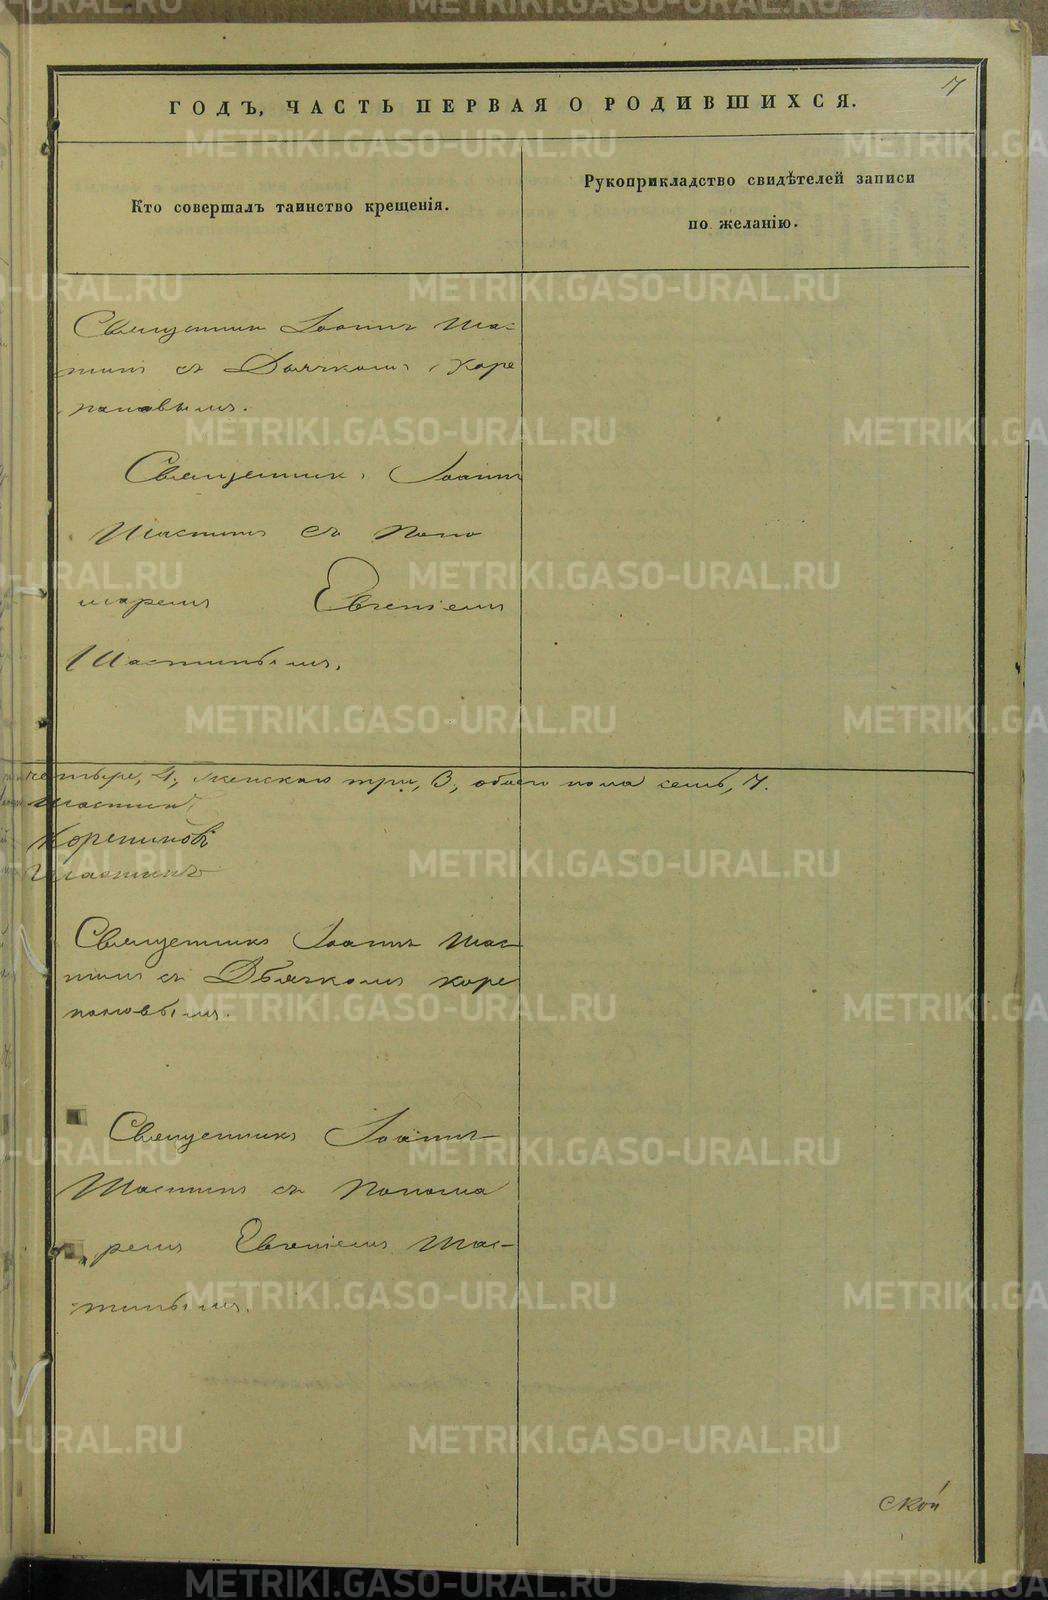 7
ГОДЪ, ЧАСТЬ ПЕРВАЯ О РОДИВШИХСЯ.
Кто совершалъ таинство крещенія.
Рукоприкладство свидѣтелей записи
по желанію.
Священникъ Іоаннъ Шас-
тинъ съ Дьячкомъ Коре
пановымъ.
Священникъ Іоаннъ
Шастинъ съ Поно
маремъ Евгеніемъ
Шастинымъ.
четыре, 4, женскаго три, 3, обоего пола семь, 7.
Шастинъ
Шастинъ
Священникъ Іоаннъ Шас-
тинъ съ Дьячкомъ Коре
пановымъ.
Священникъ Іоаннъ
Шастинъ съ Понома
ремъ Евгеніемъ Шас-
тинымъ.
ской
METRIKI.GASO-URAL.RU